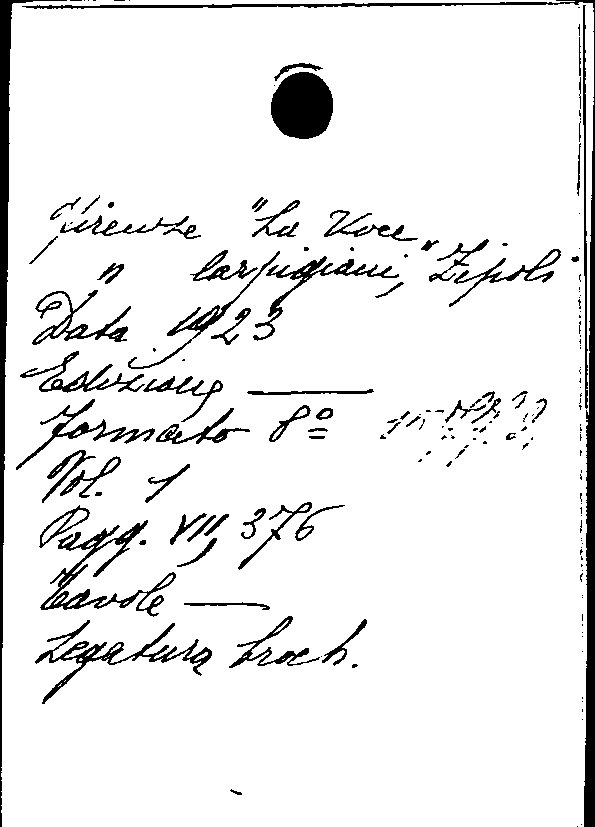 Firenze "La Voce"
" Carpigiani, Zipoli
Data 1923
Edizione —
formato 8º
Vol. 1
Pagg. VII, 376
Tavole —
Legatura broch.